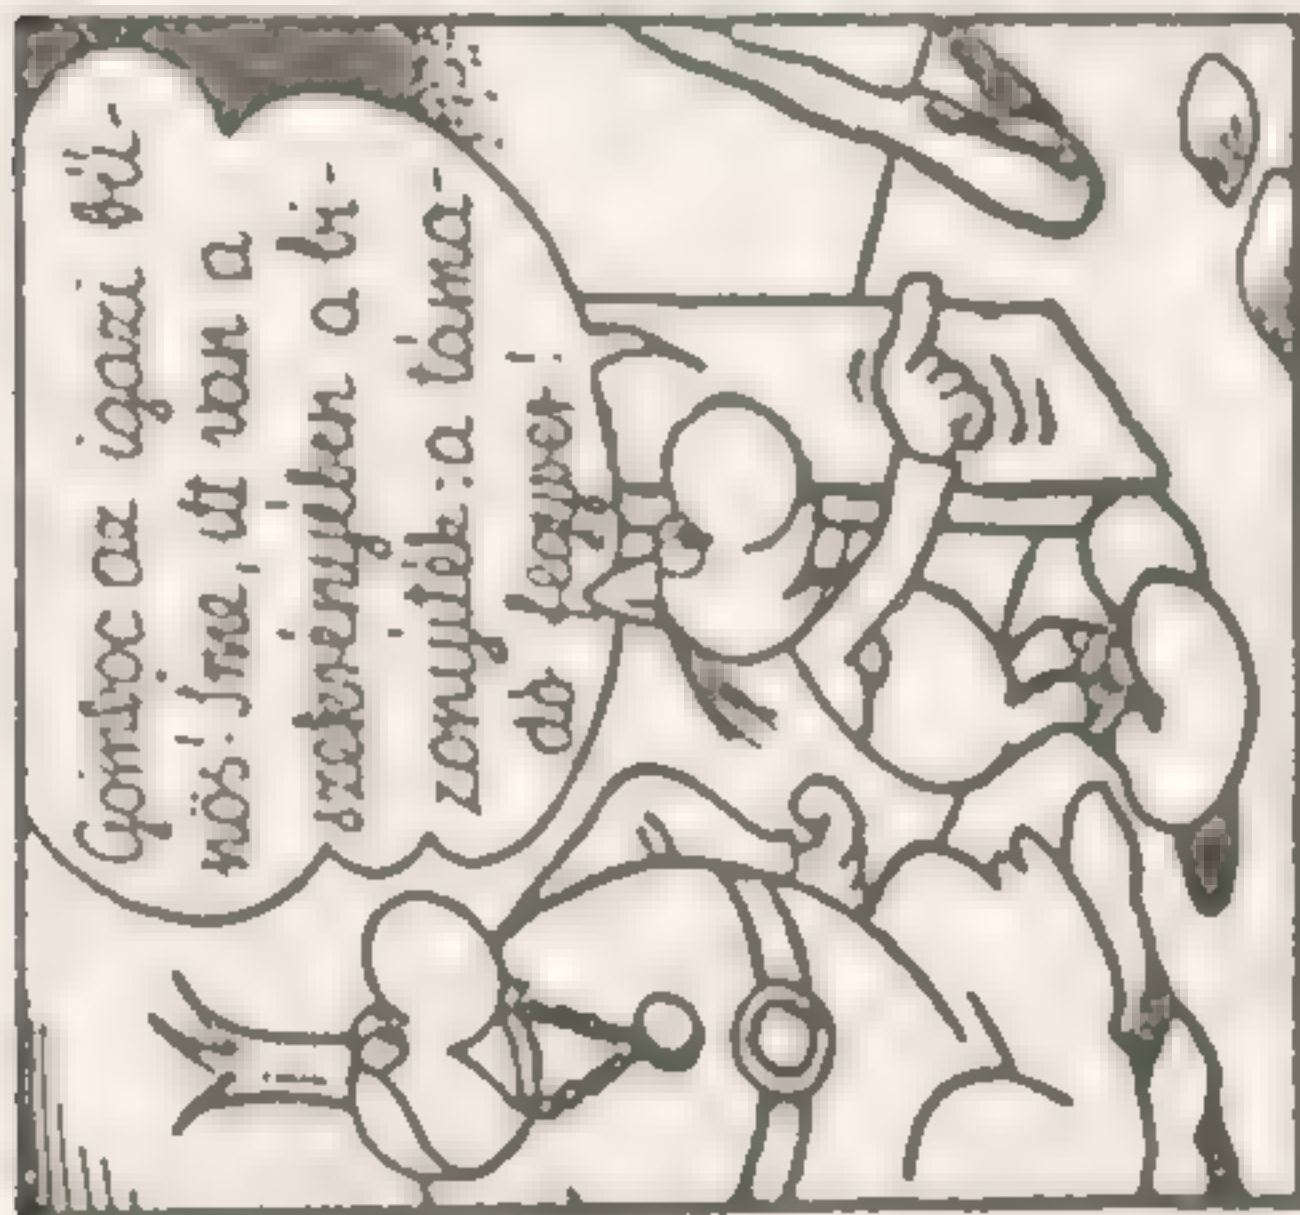 Gömböc az igazi bű-
nös! Íme, itt van a
szekrényében a bi-
zonyíték: a táma-
dó fegyver!